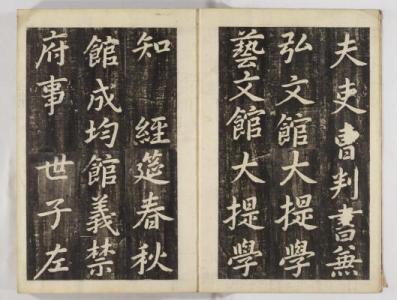 夫吏曹判書兼
弘文館大提學
藝文館大提學
知　經筵春秋
館成均館義禁
府事　世子左